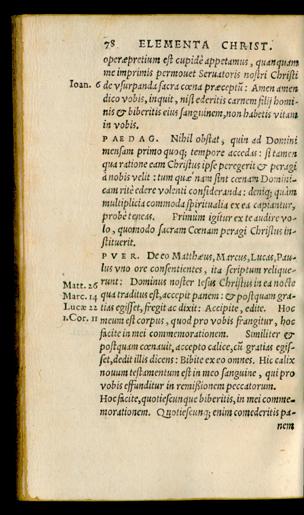 78 ELEMENTA CHRIST.
operæpretium est cupidè appetamus, quanquam
me imprimis permouet Seruatoris nostri Christi
Ioan. 6 de vsurpanda sacra cœna præceptū: Amen amen
dico vobis, inquit, nisi ederitis carnem filij homi-
nis & biberitis eius sanguinem, non habetis vitam
in vobis.
PAEDAG. Nihil obstat, quin ad Domini
mensam primo quoq; tempore accedas: si tamen
qua ratione eam Christus ipse peregerit & peragi
à nobis velit: tum quæ nam sint cœnam Domini-
cam ritè edere volenti consideranda: deniq; quàm
multiplicia commoda spiritualia ex ea captantur,
probè teneas. Primùm igitur ex te audire vo-
lo, quomodo sacram Cœnam peragi Christus in-
stituerit.
PVER. De eo Matthæus, Marcus, Lucas, Pau-
lus vno ore consentientes, ita scriptum relique-
Matt. 26 runt: Dominus noster Iesus Christus in ea nocte
Marc. 14 qua traditus est, accepit panem: & postquam gra-
Lucæ 22 tias egisset, fregit ac dixit: Accipite, edite. Hoc
1.Cor. 11 meum est corpus, quod pro vobis frangitur, hoc
facite in mei commemorationem. Similiter &
postquam cœnauit, accepto calice, cū gratias egis-
set, dedit illis dicens: Bibite ex eo omnes. Hic calix
nouum testamentum est in meo sanguine, qui pro
vobis effunditur in remissionem peccatorum.
Hoc facite, quotiescunque biberitis, in mei comme-
morationem. Quotiescunq; enim comederitis pa-
nem